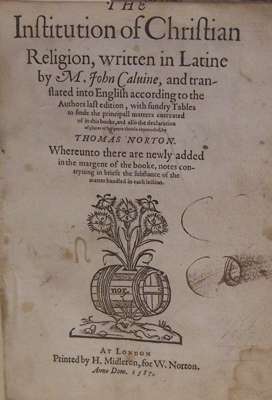 THE
Institution of Christian
Religion, written in Latine
by M. John Caluine, and tran-
slated into English according to the
Authors last edition, with sundry Tables
to finde the principall matters entreated
of in this booke, and also the declaration
of places of Scripture therein expounded, by
THOMAS NORTON.
Whereunto there are newly added
in the margent of the booke, notes con-
teyning in briefe the substance of the
matter handled in each section.
nor
AT LONDON
Printed by H. Midleton, for W. Norton.
Anno Dom. 1587.